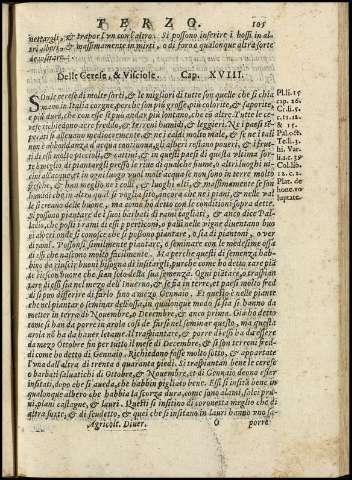 TERZO. 105
nettargli, & trapor l'un con l'altro. Si possono inserire i bossi in al-
& massimamente in mirti, o di loro a qualonque altra sorte
Delle Cerese, & Visciole. Cap. XVIII.
Sono le cerese di molte sorti, & le migliori di tutte son quelle che si chia
mano in Italia corgne, perche son piu grosse, piu colorite, & saporite,
e piu dure, che con esse si puo andar piu lontano, che cō altre. Tutte le ce-
rese richiedono aere freddo, & terreni humidi, & leggieri. Ne i paesi te-
perati si allevano mediocremente, & ne i caldi molto male, & se ne i tali
non è abbondanza d'acqua continoua, gli alberi restano poueri, & i frut-
ti pochissimi piccoli, & cattiui; & in questi paesi di questa vltima sor-
te, è meglio di piantargli presso le riue di qualche fiume, o altri luoghi vi-
cini all'acqua in ogni luogo vuol molt'acqua se non sono in terre molto
fresche, & han meglio ne i colli, & luoghi alti, & massimamente se son
humidi che in altra qual si voglia sorte, ancora che ne i piani, & nelle val
li se creano delle buone, ma come ho detto con le conditioni sopra dette.
Si possono piantar de i suoi barbati di rami tagliati, & anco dice Pal-
ladio, che posti i rami di essi per ticoni, o palli nelle vigne diuentano buo
ni alberi onde si conosce che si possono piantare, o sia di piantoni, o ver
di rami. Possonsi similmente piantare, o seminare con le medesime ossa
di essi che nascono molto facilmente. Ma perche questi di semenza hab-
bino da riuscir buoni bisogna d'insitargli, purche come ho detto care più
che riescon buone che sian solo della sua semenza. Ogni piātare, o traspian
tare di essi sia nel mezo dell'inuerno, & se sia in terre, et paesi molto fred
di si può differire di farlo fino a mezo Gennaio. Et questo è nelle piante
che nel piantar o seminar dell'ossa, in qualonque modo si sia si hanno da
metter in terra di Nouembre, o Decembre, & anco prima. Gia ho detto
come si han da porre in arola così da far far el seminar questo, ma questa
arola nō ha da hauer letame. Il traspiantare, & porre di essi ha da essere
da mezo Ottobre fin per tutto il mese di Decembre, & si son terreni fred-
di come ho detto di Gennaio. Richiedono fosse molto sotto, & appartate
l'vna dall'altra di trenta o quaranta piedi. Si traspiantan bene le cerese
o barbati saluatichi di Ottobre, & Nouembre, et di Gennaio deono esser
insitati, dopo che si aueda, che habbin pigliato bene. Essi si insita bene in
qualonque albero che habbia la scorza dura, come sono alami, salci, pru
ni, piani, castagne, & lauri. Questi si insitino di coronetta meglio che da
altra sorte, & di scudetto, & quei che si insitano in lauri hanno uno sa-
Agricolt. Diuer. O porre
Pli. li. 15
cap. 26.
Cr. li. 5.
c. 11. 12.
& 15.
Pal. oct.
Ted. 3.
hi. Var.
1. ca. 39
Col. lib.
11. c. 2.